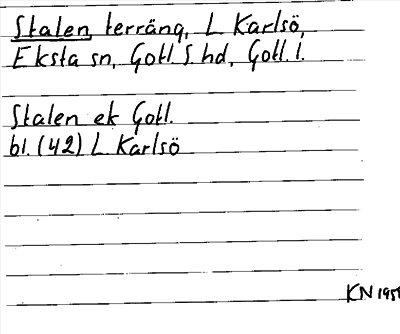 Stalen, terräng, L Karlsö,
Eksta sn, Gotl S. hd, Gotl. l.
Stalen ek Gotl.
bl. (42) L Karlsö
KN